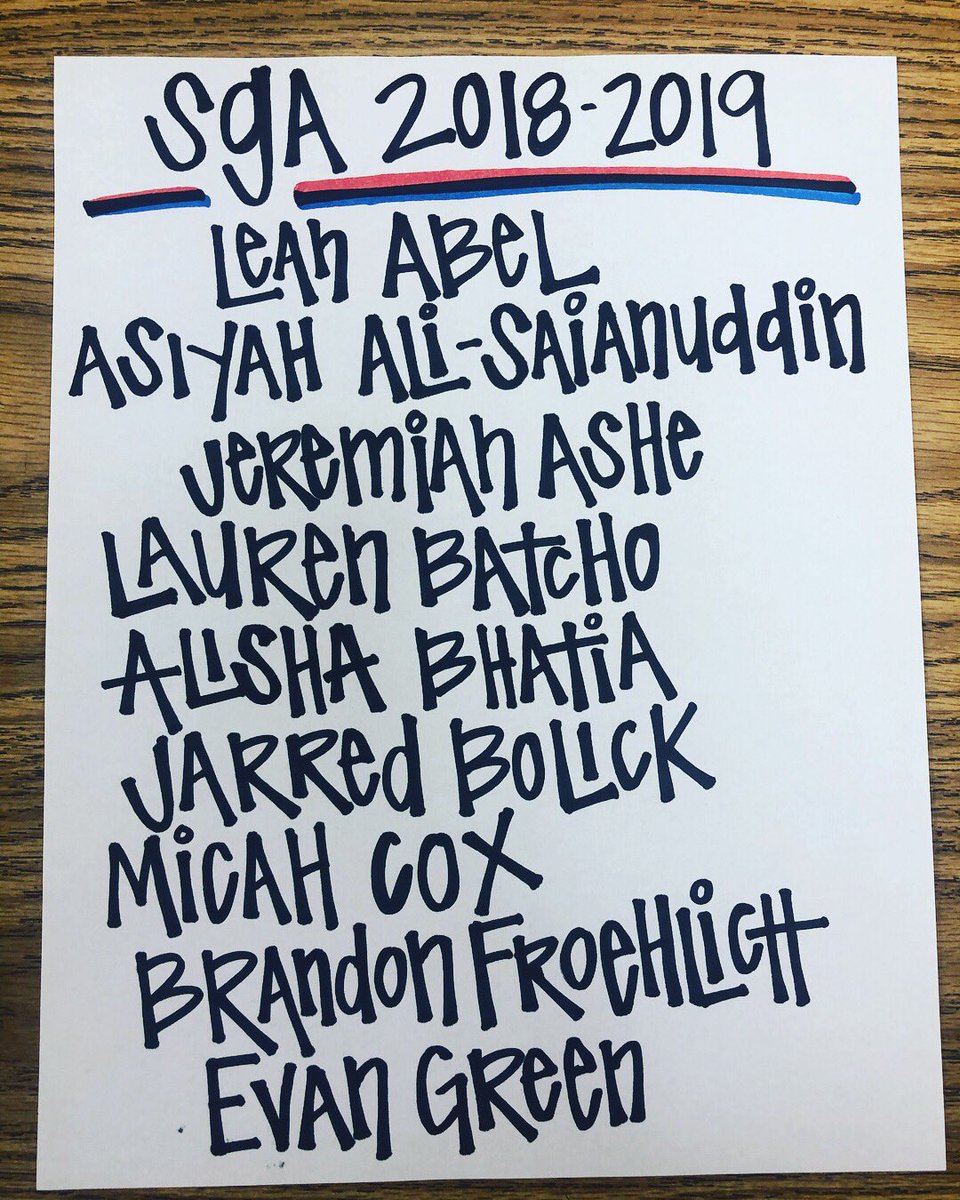 SgA 2018-2019
Leah Abel
Asiyah Ali-Saianuddin
Jeremiah Ashe
Lauren Batcho
Alisha Bhatia
Jarred Bolick
Micah Cox
Brandon Froehlich
Evan Green